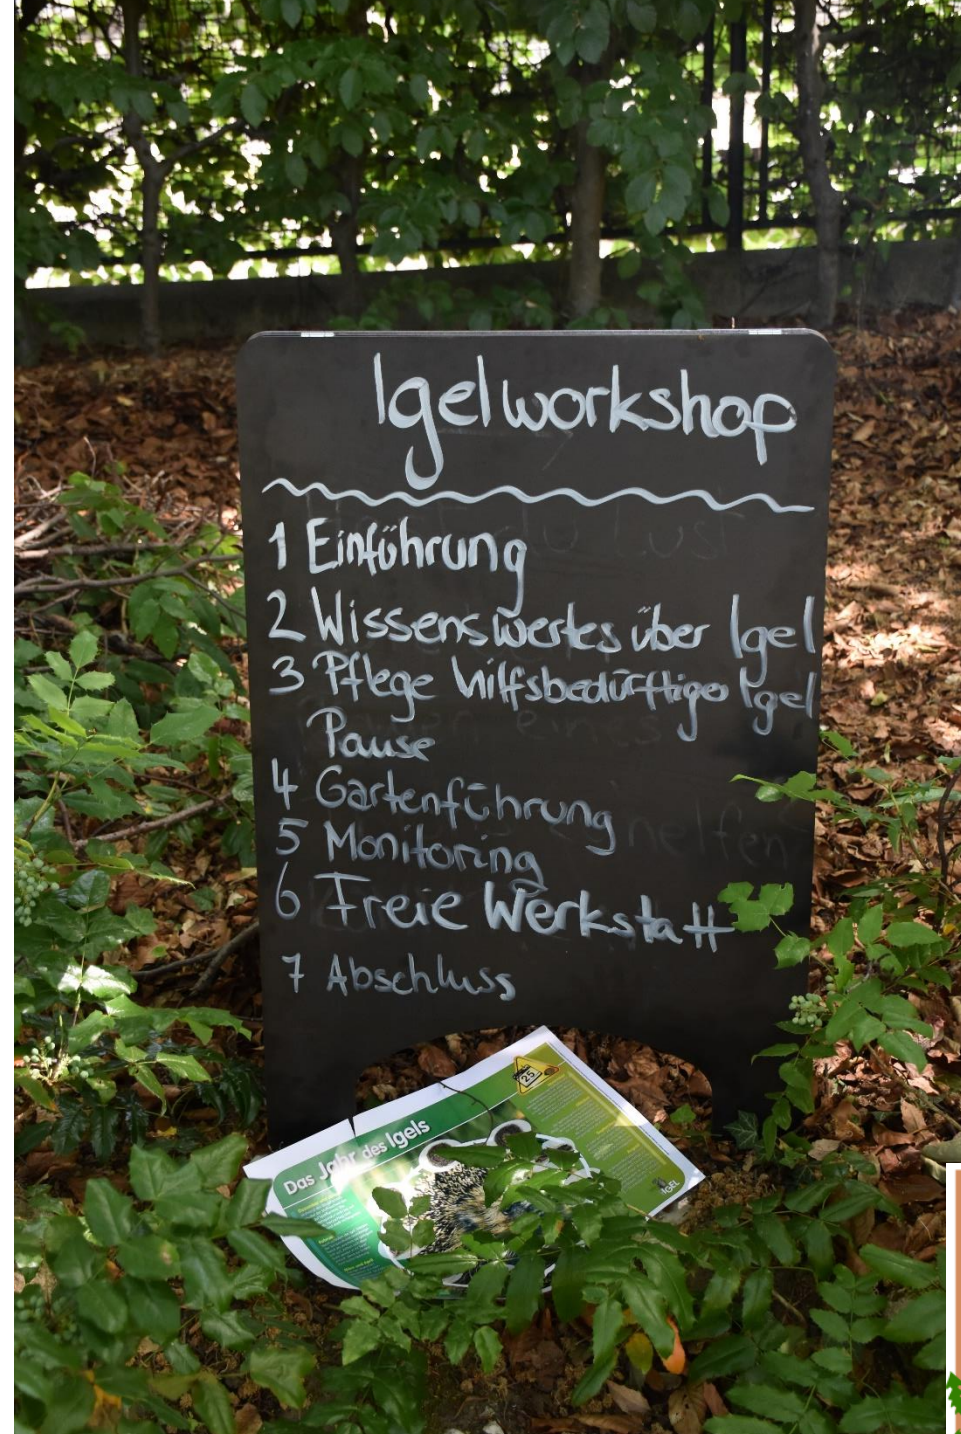 Igelworkshop
1 Einführung
2 Wissenswertes über Igel
3 Pflege hilfsbedürftige Igel
Pause
4 Gartenführung
5 Monitoring
6 Freie Werkstatt
7 Abschluss
Das Jahr des Igels
25